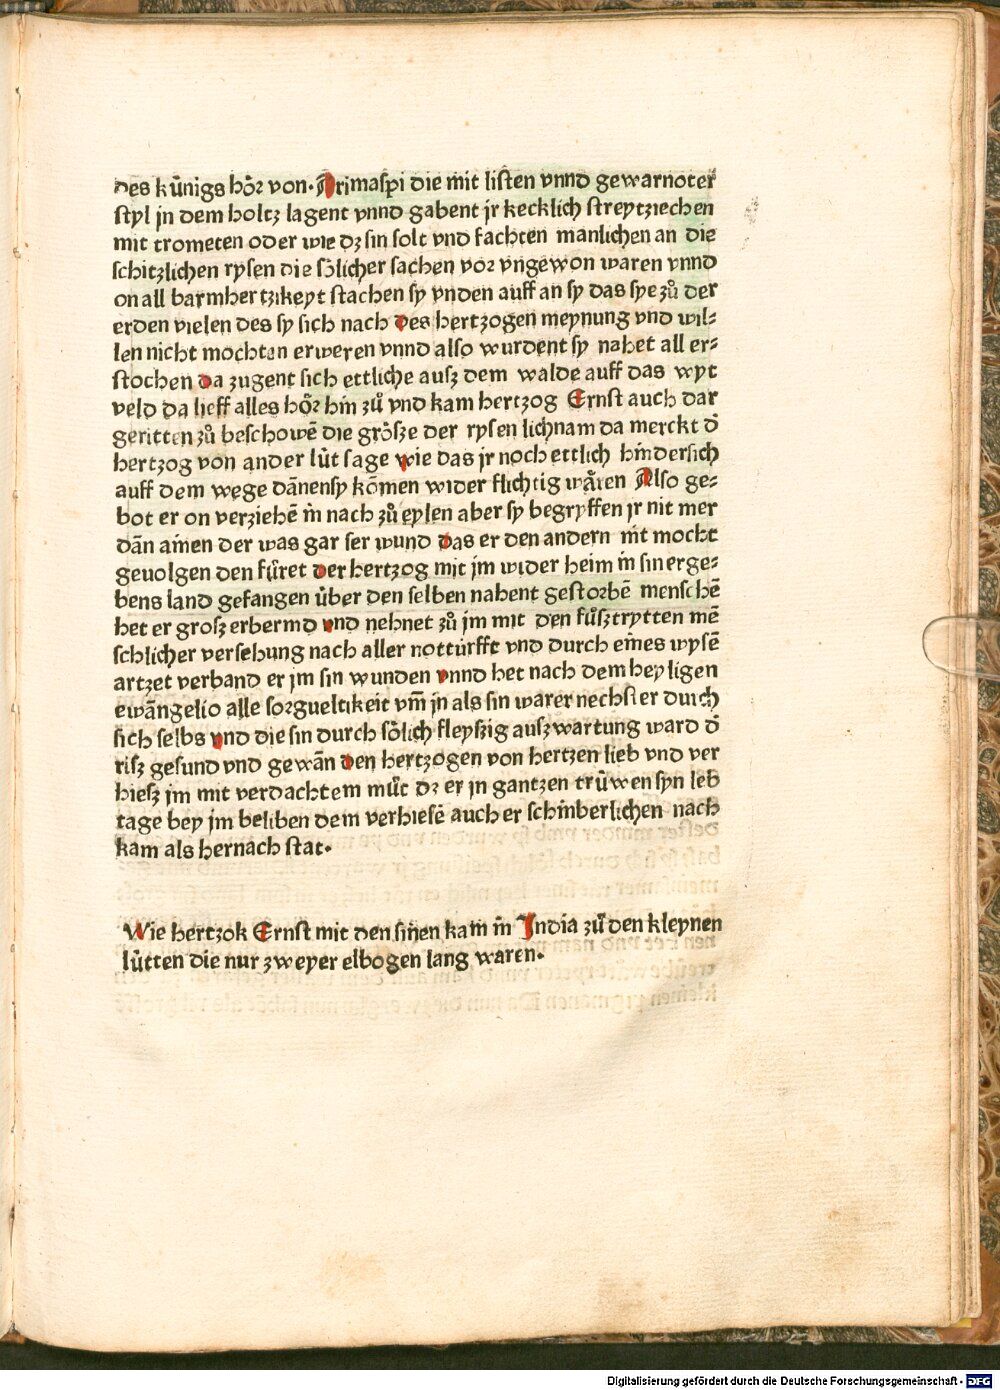 des kűnigs hőꝛ von· Arimaſpi die mit liſten vnnd gewarnoter
ſtyl jn dem holtz lagent vnnd gabent jr kecklich ſtreytziechen
mit trometen oder wie dz ſin ſolt vnd fachten manlichen an die
ſchitzlichen ryſen die ſőlicher ſachen voꝛ vngewon waren vnnd
on all barmhertzikeyt ſtachen ſy vnden auff an ſy das ſye zů der
erden vielen des ſy ſich nach des hertzogen meynung vnd wil⸗
len nicht mochten erweren vnnd alſo wurdent ſy nahet all er⸗
ſtochen da zugent ſich ettliche auſz dem walde auff das wyt
veld da lieff alles hőꝛ hin zů vnd kam hertzog Ernſt auch dar
geritten zů beſchowē die grőſze der ryſen lichnam da merckt d̄
hertzog von ander lűt ſage wie das jr noch ettlich hinderſich
auff dem wege dānenſy kōmen wider flichtig wåren Alſo ge⸗
bot er on verziehē in nach zů eylen aber ſy begryffen jr nit mer
dān ainen der was gar ſer wund das er den andern nit mocht
geuolgen den fűret der hertzog mit jm wider heim in ſin erge⸗
bens land gefangen űber den ſelben nahent geſtorbē menſchē
het er grosz erbermd vnd nehnet zů jm mit den fůſztrytten mē
ſchlicher verſehung nach aller notturfft vnd durch eines wyſē
artzet verband er jm ſin wunden vnnd het nach dem heyligen
ewāngelio alle ſoꝛgueltikeit vm̄ jn als ſin warer nechſter durch
ſich ſelbs vnd die ſin durch ſőlich fleyſzig auſzwartung ward d̄
riſz geſund vnd gewān den hertzogen von hertzen lieb vnd ver
hieſz jm mit verdachtem můt dz er jn gantzen trűwen ſyn leb
tage bey jm beliben dem verhieſē auch er ſchinberlichen nach
kam als hernach ſtat·
Wie hertzok Ernſt mit den ſinen kam in India zů den kleynen
lűtten die nur zweyer elbogen lang waren·
Digitalisierung gefördert durch die Deutsche Forschungsgemeinschaft - DFG